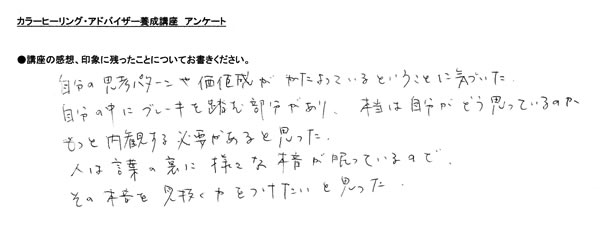 カラーヒーリング・アドバイザー養成講座　アンケート
●講座の感想、印象に残ったことについてお書きください。
自分の思考パターンや価値感がかたよっているということに気づいた.
自分の中にブレーキを踏む部分があり、本当は自分がどう思っているのか
もっと内観する必要があると思った.
人は言葉の裏に様々な本音が眠っているので、
その本音を見抜く力をつけたいと思った.